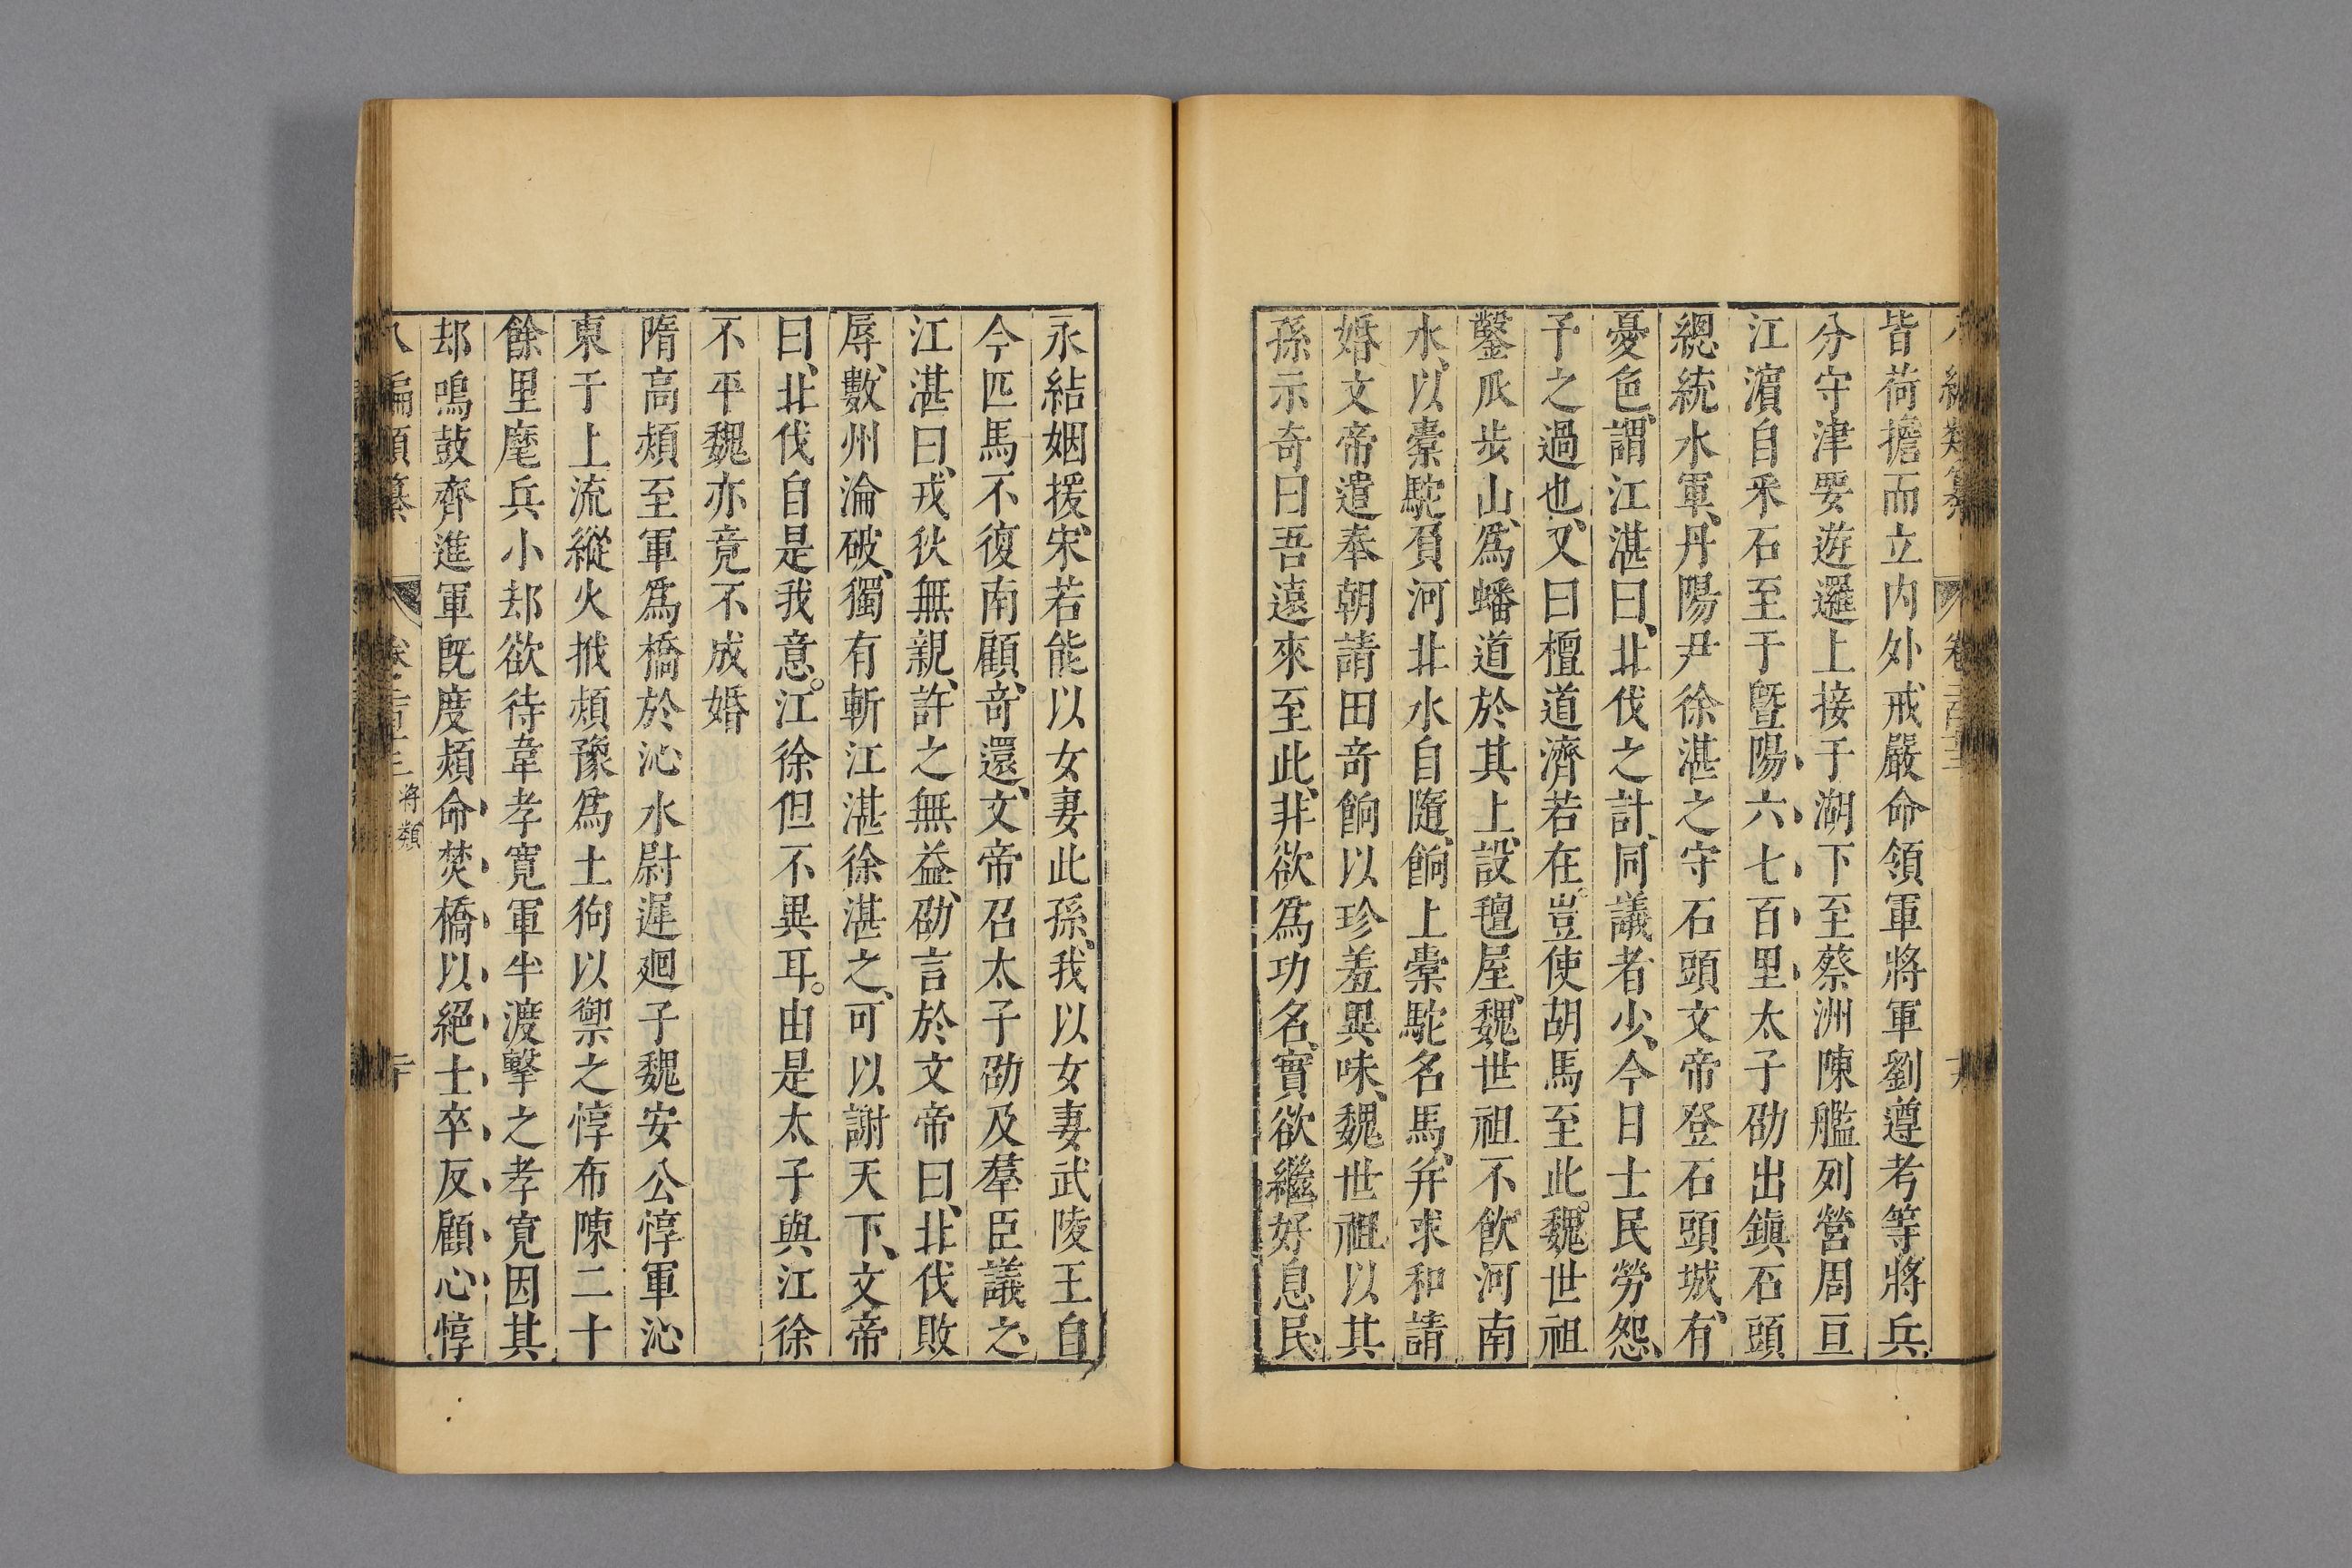 皆荷擔而立内外戒嚴命領軍將軍劉遵考等將兵
分守津要遊邏上接于湖下至蔡洲陳艦列營周亘
江濵自釆石至于暨陽六七百里太子劭出鎭石頭
總統水軍丹陽尹徐湛之守石頭文帝登石頭城有
憂色謂江湛曰北伐之計同議者少今日士民勞怨
予之過也又曰檀道濟若在豈使胡馬至此魏世祖
鑿瓜步山爲蟠道於其上設氊屋魏世祖不飮河南
水以橐駝負河北水自隨餉上橐駝名馬并求和請
婚文帝遣奉朝請田奇餉以珍羞異味魏世祖以其
孫示奇曰吾遠來至此非欲爲功名實欲繼好息民
永結姻援宋若能以女妻此孫我以女妻武陵王自
今匹馬不復南顧奇還文帝召太子劭及羣臣議之
江湛曰戎狄無親許之無益劭言於文帝曰北伐敗
辱數州淪破獨有斬江湛徐湛之可以謝天下文帝
曰北伐自是我意。江徐但不異耳。由是太子與江徐
不平魏亦竟不成婚
隋高熲至軍爲橋於沁水尉遲廻子魏安公惇軍沁
東于上流縱火栰熲豫爲土狗以禦之惇布陳二十
餘里麾兵小却欲待韋孝寬軍半渡擊之孝寬因其
却鳴鼓齊進軍旣度熲命焚橋以絕士卒反顧心惇
八編類纂 卷之百十三 將類 二十